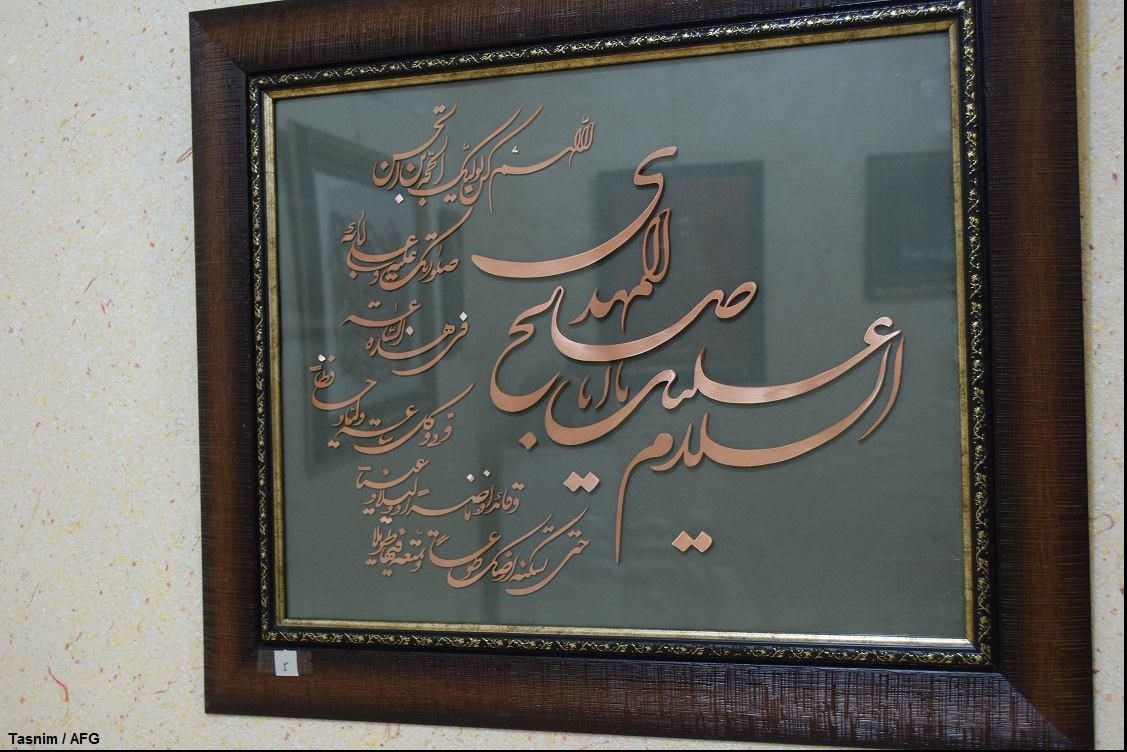 السلام علیک یا ابا صالح المهدی
اللهم کن لولیک الحجة بن الحسن
صلواتک علیه و علی آبائه
فی هذه الساعة
و فی کل ساعة ولیا و حافظا
و قائدا و ناصرا و دلیلا و عینا
حتی تسکنه ارضک طوعا و تمتعه فیها طویلا
Tasnim / AFG